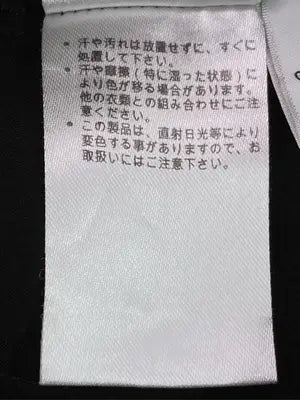 • 汗や汚れは放置せずに、すぐに
処置して下さい。
• 汗や摩擦（特に湿った状態）に
より色が移る場合があります。
他の衣類との組み合わせにご注
意ください。
• この製品は、直射日光等により
変色する事がありますので、お
取扱いにはご注意下さい。